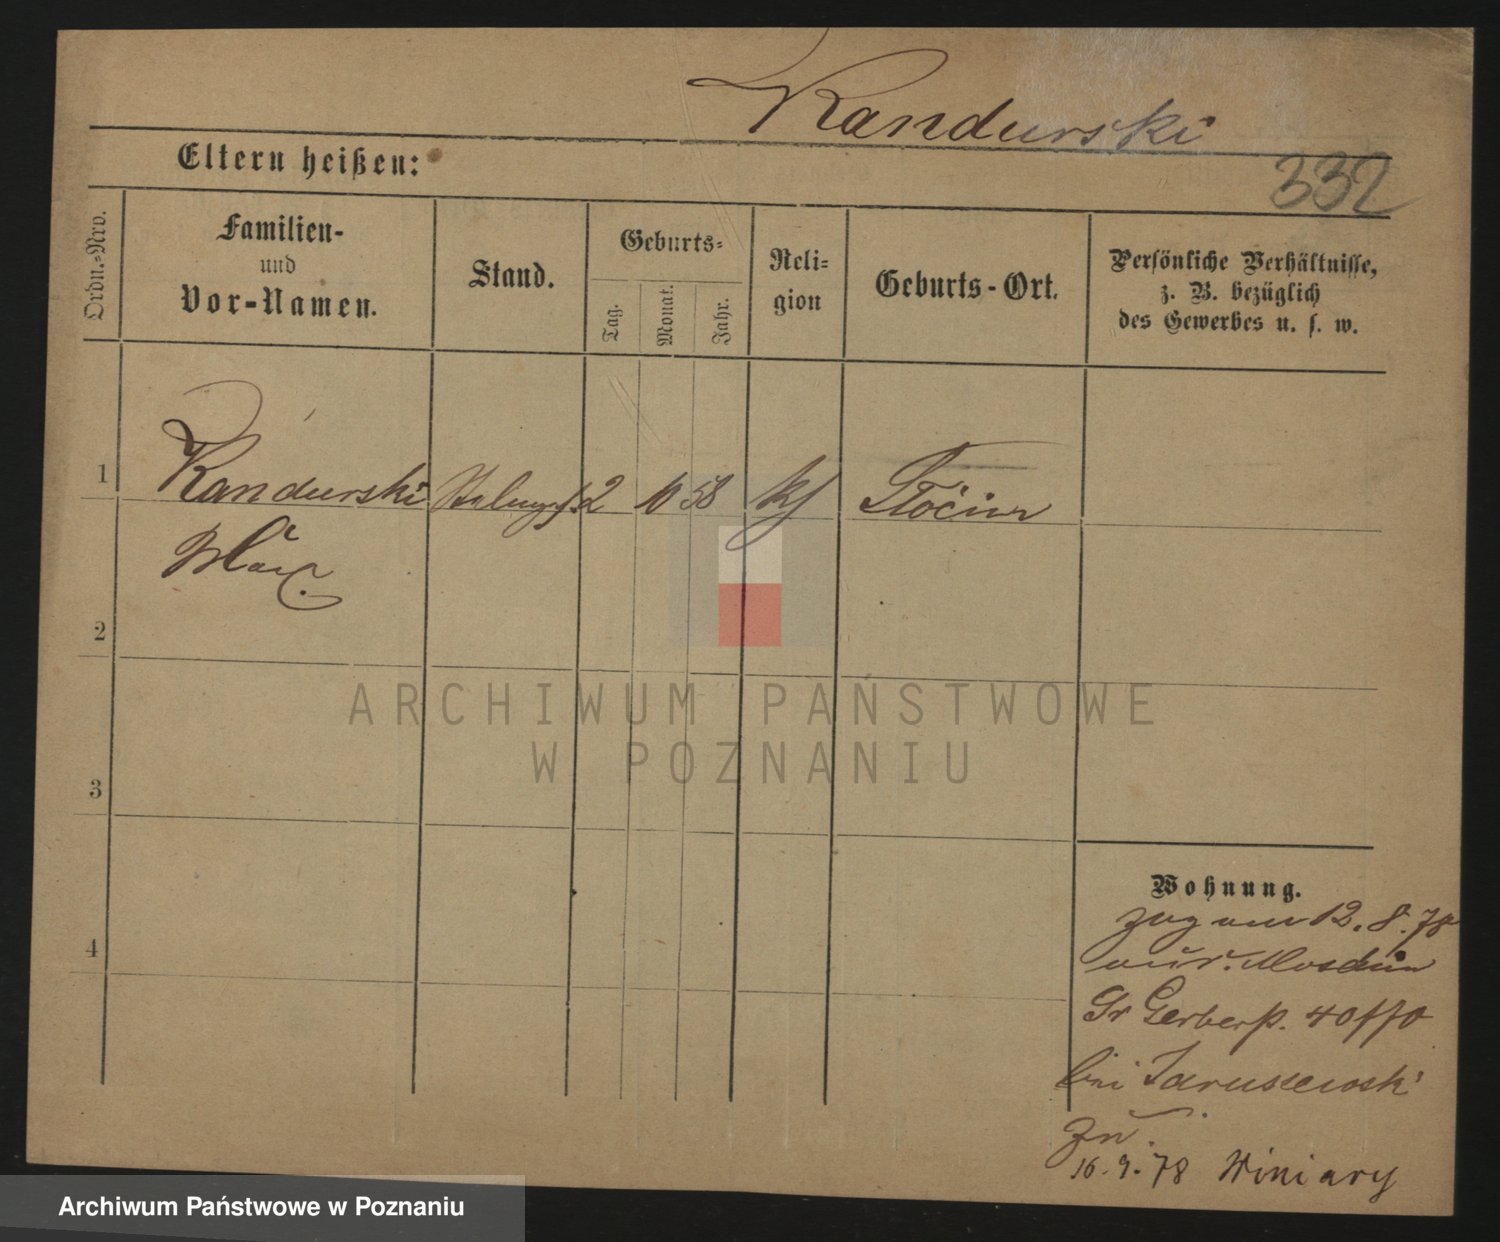 Kandurski
332
Eltern heißen:
Ordn.-Nro.
Familien-
und
Vor-Namen.
Stand.
Geburts-
Tag.
Monat.
Jahr.
Reli-
gion
Geburts-Ort.
Persönliche Verhältnisse,
z. B. bezüglich
des Gewerbes u. s. w.
1
Kandurski
2 10 58
Max
2
3
4
Wohnung.
zug am 12. 8. 78
aus
Gr Gerberst. 40
bei Jaruszewski
zu
16. 9. 78 Winiary
ARCHIWUM PAŃSTWOWE
W POZNANIU
Archiwum Państwowe w Poznaniu